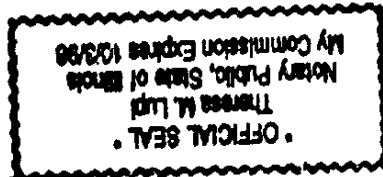 " OFFICIAL SEAL "
Theresa M. Lupi
Notary Public, State of Illinois
My Commission Expires 10/3/98